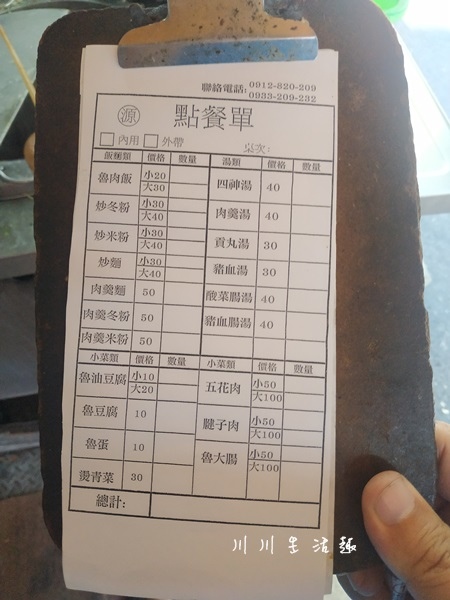 聯絡電話: 0912-820-209
0933-209-232
源 點餐單
內用 外帶 桌次:
飯麵類 價格 數量 湯類 價格 數量
魯肉飯 小20 四神湯 40
大30
炒冬粉 小30 肉羹湯 40
大40
炒米粉 小30 貢丸湯 30
大40
炒麵 小30 豬血湯 30
大40
肉羹麵 50 酸菜腸湯 40
肉羹冬粉 50 豬血腸湯 40
肉羹米粉 50
小菜類 價格 數量 小菜類 價格 數量
魯油豆腐 小10 五花肉 小50
大20 大100
魯豆腐 10 腱子肉 小50
大100
魯蛋 10 魯大腸 小50
大100
燙青菜 30
總計:
川川生活趣